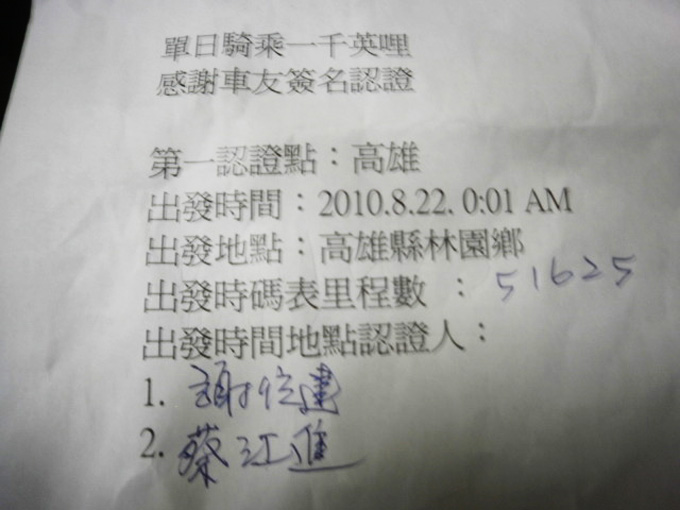 單日騎乘一千英哩
感謝車友簽名認證
第一認證點：高雄
出發時間：2010.8.22. 0:01 AM
出發地點：高雄縣林園鄉
出發時碼表里程數 ：51625
出發時間地點認證人：
1. 謝信建
2. 蔡江進